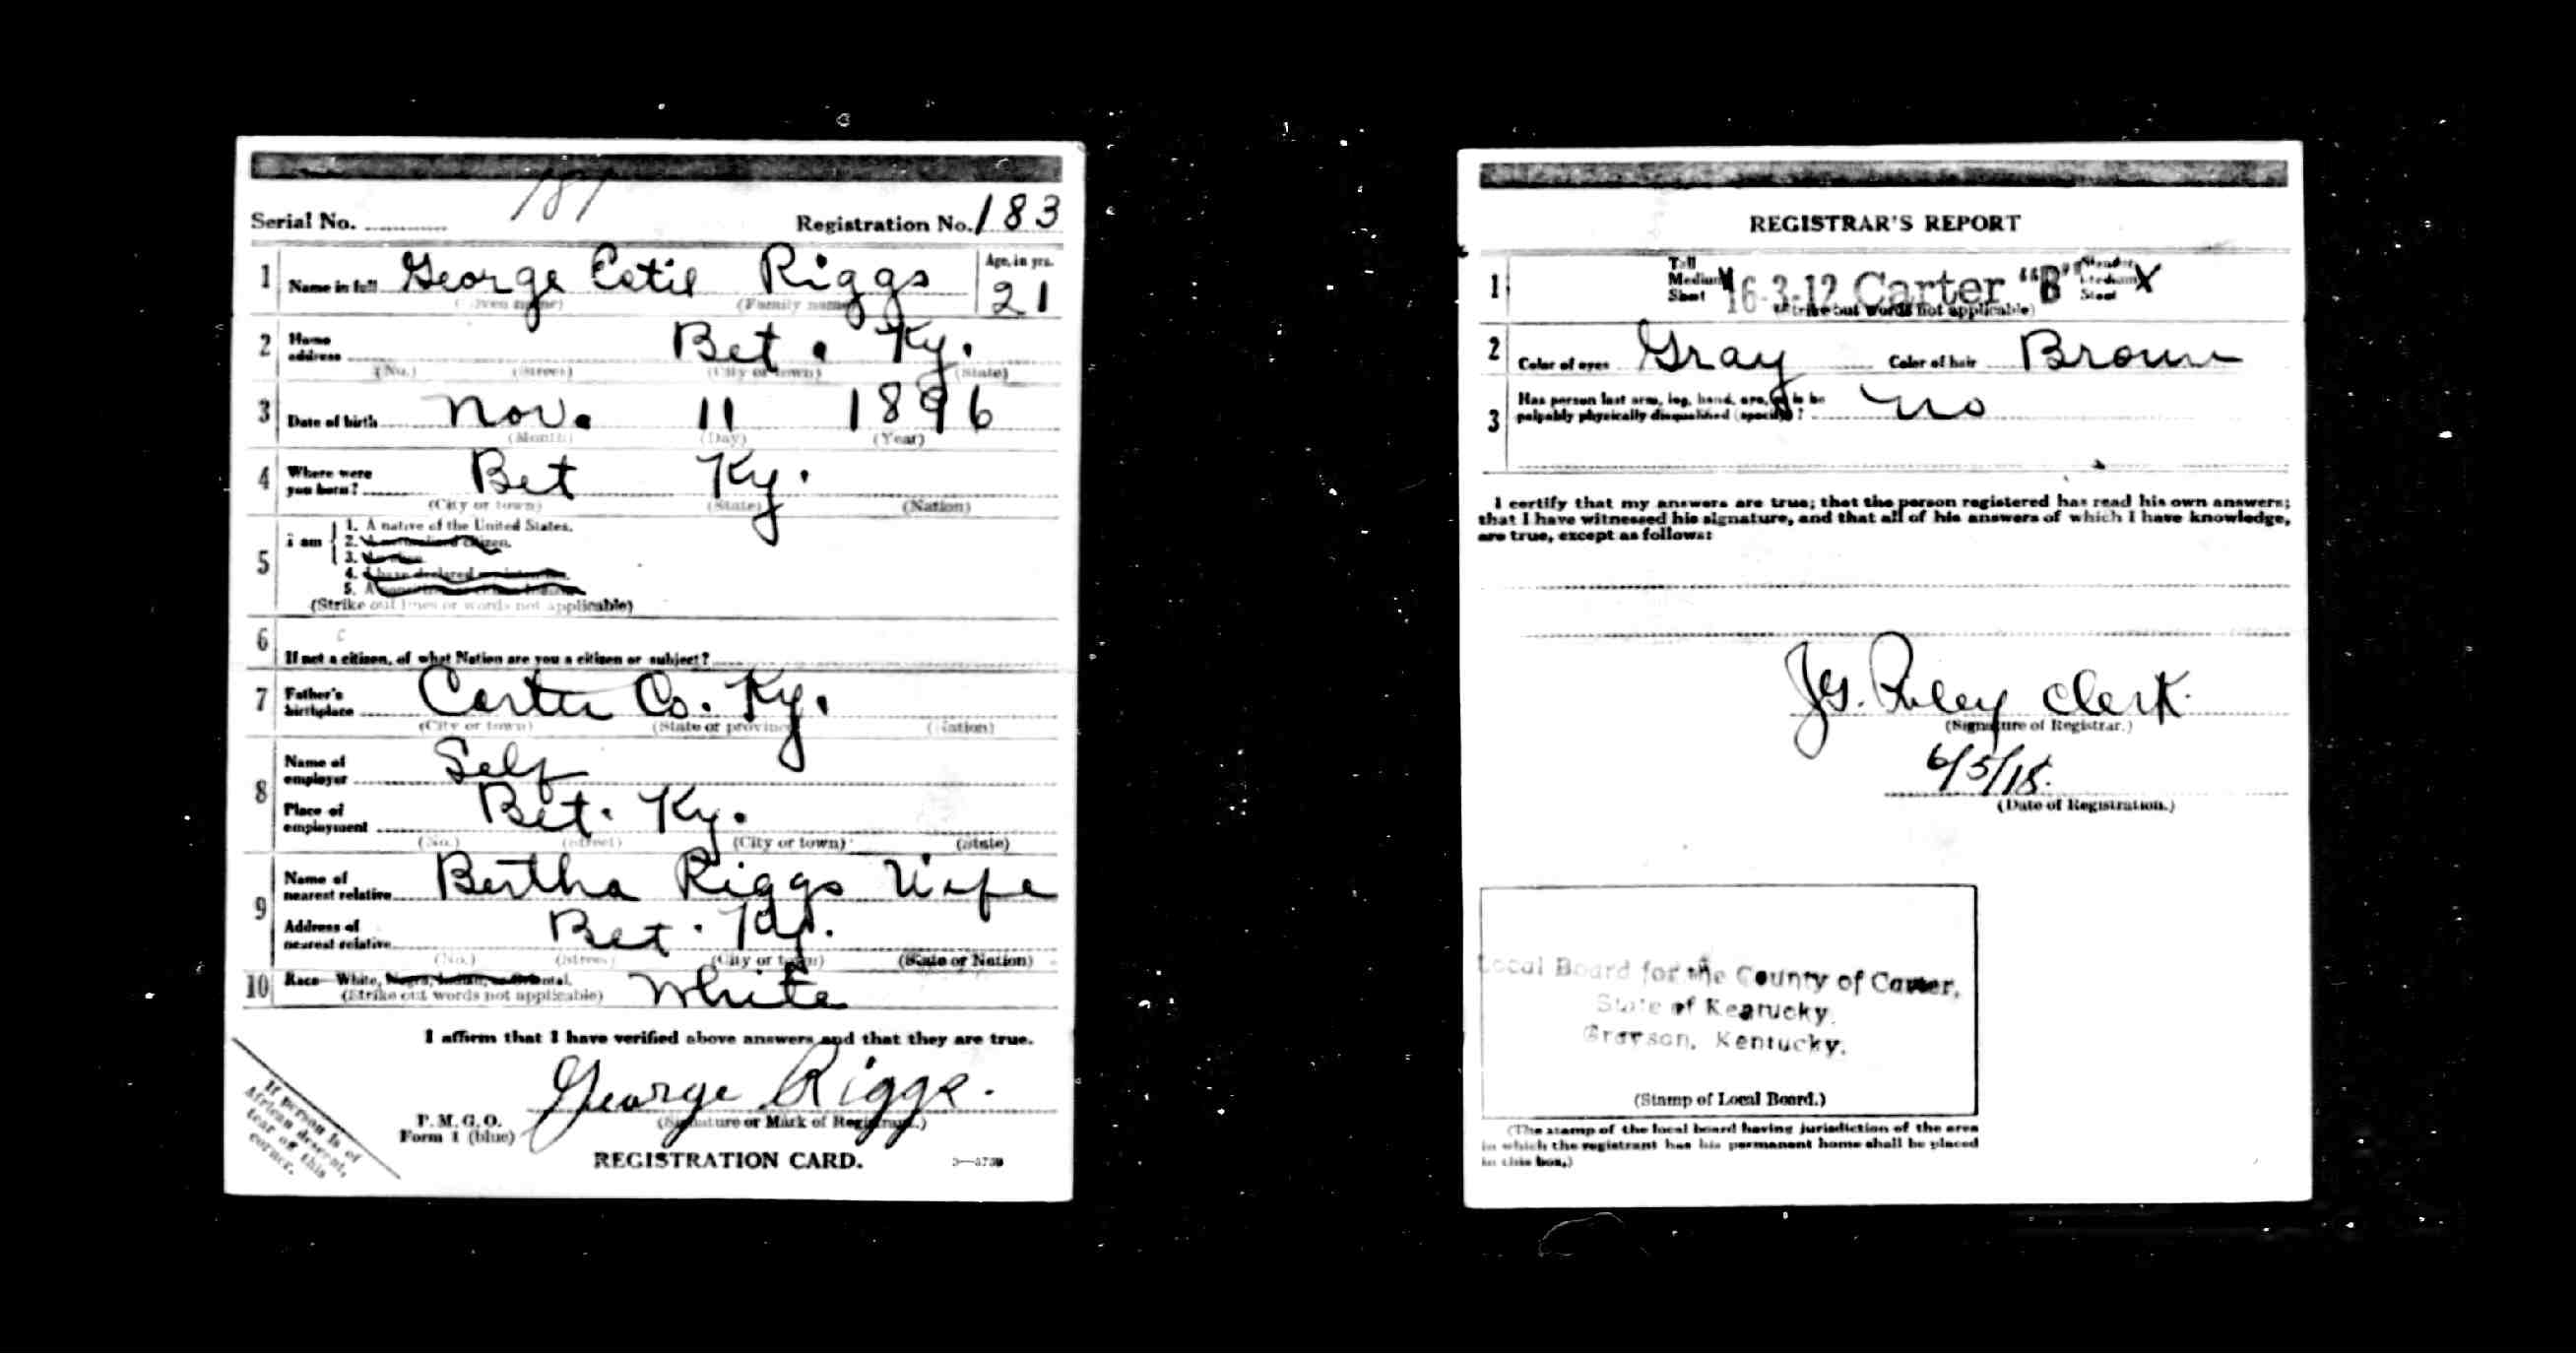 Serial No. 181 Registration No. 183
1 Name in full George Estil Riggs Age, in yrs. 21
(Given name) (Family name)
2 Home address Bet. Ky.
(No.) (Street) (City or town) (State)
3 Date of birth Nov. 11 1896
(Month) (Day) (Year)
4 Where were you born? Bet Ky.
(City or town) (State) (Nation)
5 I am
1. A native of the United States.
2. citizen.
3.
4. I have declared
5. A
(Strike out lines or words not applicable)
6 If not a citizen, of what Nation are you a citizen or subject?
7 Father's birthplace Carter Co. Ky.
(City or town) (State or province) (Nation)
8 Name of employer Self
Place of employment Bet. Ky.
(No.) (Street) (City or town) (State)
9 Name of nearest relative Bertha Riggs Wife
Address of nearest relative Bet. Ky.
(No.) (Street) (City or town) (State or Nation)
10 Race—White, Negro, Indian, or Oriental. White
(Strike out words not applicable)
I affirm that I have verified above answers and that they are true.
George Riggs.
(Signature or Mark of Registrant.)
P. M. G. O.
Form 1 (blue)
REGISTRATION CARD.
If person is
African descent,
tear off this
corner.
REGISTRAR'S REPORT
1 Tall Medium Short 16-3-12 Carter "B" Slender Medium Stout X
(Strike out words not applicable)
2 Color of eyes Gray Color of hair Brown
3 Has person lost arm, leg, hand, eye, or is he
palpably physically disqualified (specify)? No
I certify that my answers are true; that the person registered has read his own answers;
that I have witnessed his signature, and that all of his answers of which I have knowledge,
are true, except as follows:
Clerk.
(Signature of Registrar.)
6/5/18.
(Date of Registration.)
Local Board for the County of Carter,
State of Kentucky.
Grayson, Kentucky.
(Stamp of Local Board.)
(The stamp of the local board having jurisdiction of the area
in which the registrant has his permanent home shall be placed
in this box.)